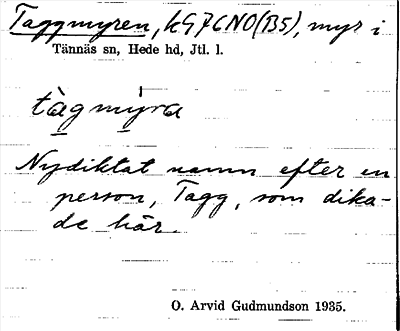 Taggmyren, kG7CNO(B5), myr i
Tännäs sn, Hede hd, Jtl. l.
tàgmýra
Nydiktat namn efter en
person, Tagg, som dika-
de här.
O. Arvid Gudmundson 1935.